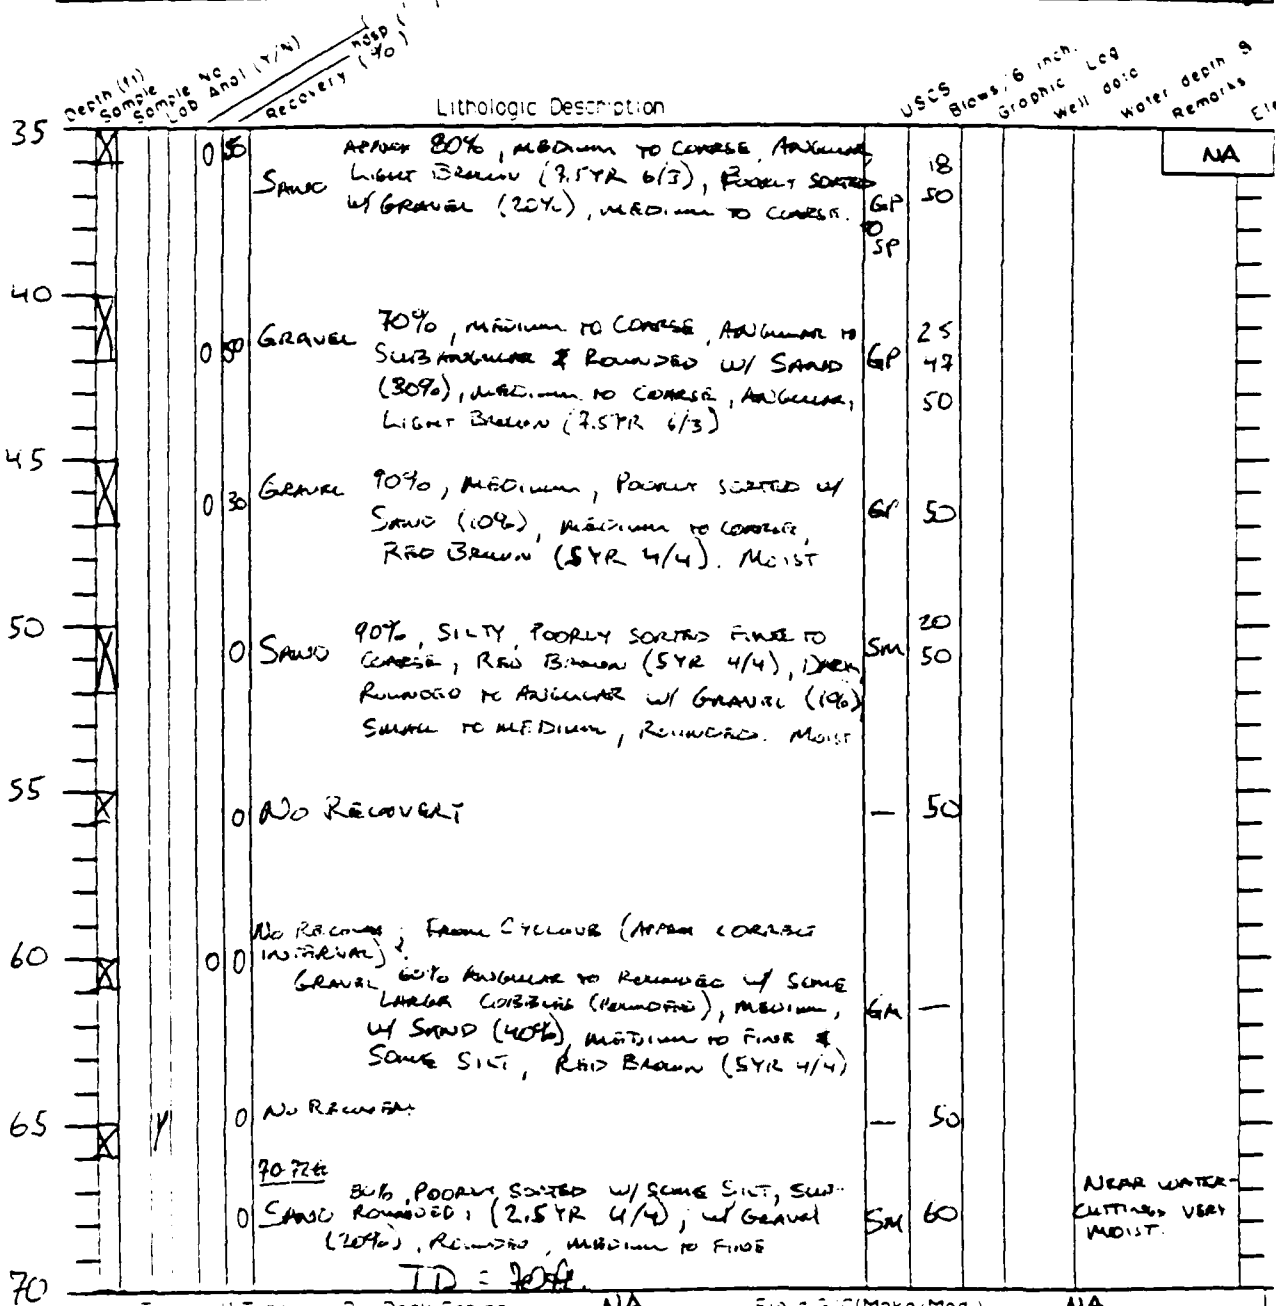 Depth (ft) Sample Sample No Lab Anal (Y/N) Recovery (%) Lithologic Description USCS Blows/6 inch. Graphic Log Well data Water depth & Remarks Ele
35 0 APPROX 80%, MEDIUM TO COARSE, ANGULAR, 18 NA
SAND LIGHT BROWN (7.5YR 6/3), POORLY SORTED 50
W/ GRAVEL (20%), MEDIUM TO COARSE. GP
TO
SP
40
GRAVEL 70%, MEDIUM TO COARSE, ANGULAR TO 25
0 50 SUBANGULAR & ROUNDED W/ SAND GP 47
(30%), MEDIUM TO COARSE, ANGULAR, 50
LIGHT BROWN (7.5YR 6/3)
45
0 30 GRAVEL 90%, MEDIUM, POORLY SORTED W/
SAND (10%), MEDIUM TO COARSE, GP 50
RED BROWN (5YR 4/4). MOIST
50 90%, SILTY, POORLY SORTED FINE TO 20
0 SAND COARSE, RED BROWN (5YR 4/4), DARK, SM 50
ROUNDED TO ANGULAR W/ GRAVEL (1%)
SMALL TO MEDIUM, ROUNDED. MOIST
55
0 NO RECOVERY — 50
NO RECOVERY; FROM CYCLONE (APPROX CORRECT
60 0 0 INTERVAL):
GRAVEL 60% ANGULAR TO ROUNDED W/ SOME
LARGER COBBLES (ROUNDED), MEDIUM, GM —
W/ SAND (40%), MEDIUM TO FINE &
SOME SILT, RED BROWN (5YR 4/4)
65 Y 0 NO RECOVERY — 50
70-72ft
80%, POORLY SORTED W/ SOME SILT, SUB- NEAR WATER-
0 SAND ROUNDED, (2.5YR 4/4), W/ GRAVEL SM 60 CUTTINGS VERY
(20%), ROUNDED, MEDIUM TO FINE MOIST.
70 TD = 70ft.
NA (Make/Mod.) NA